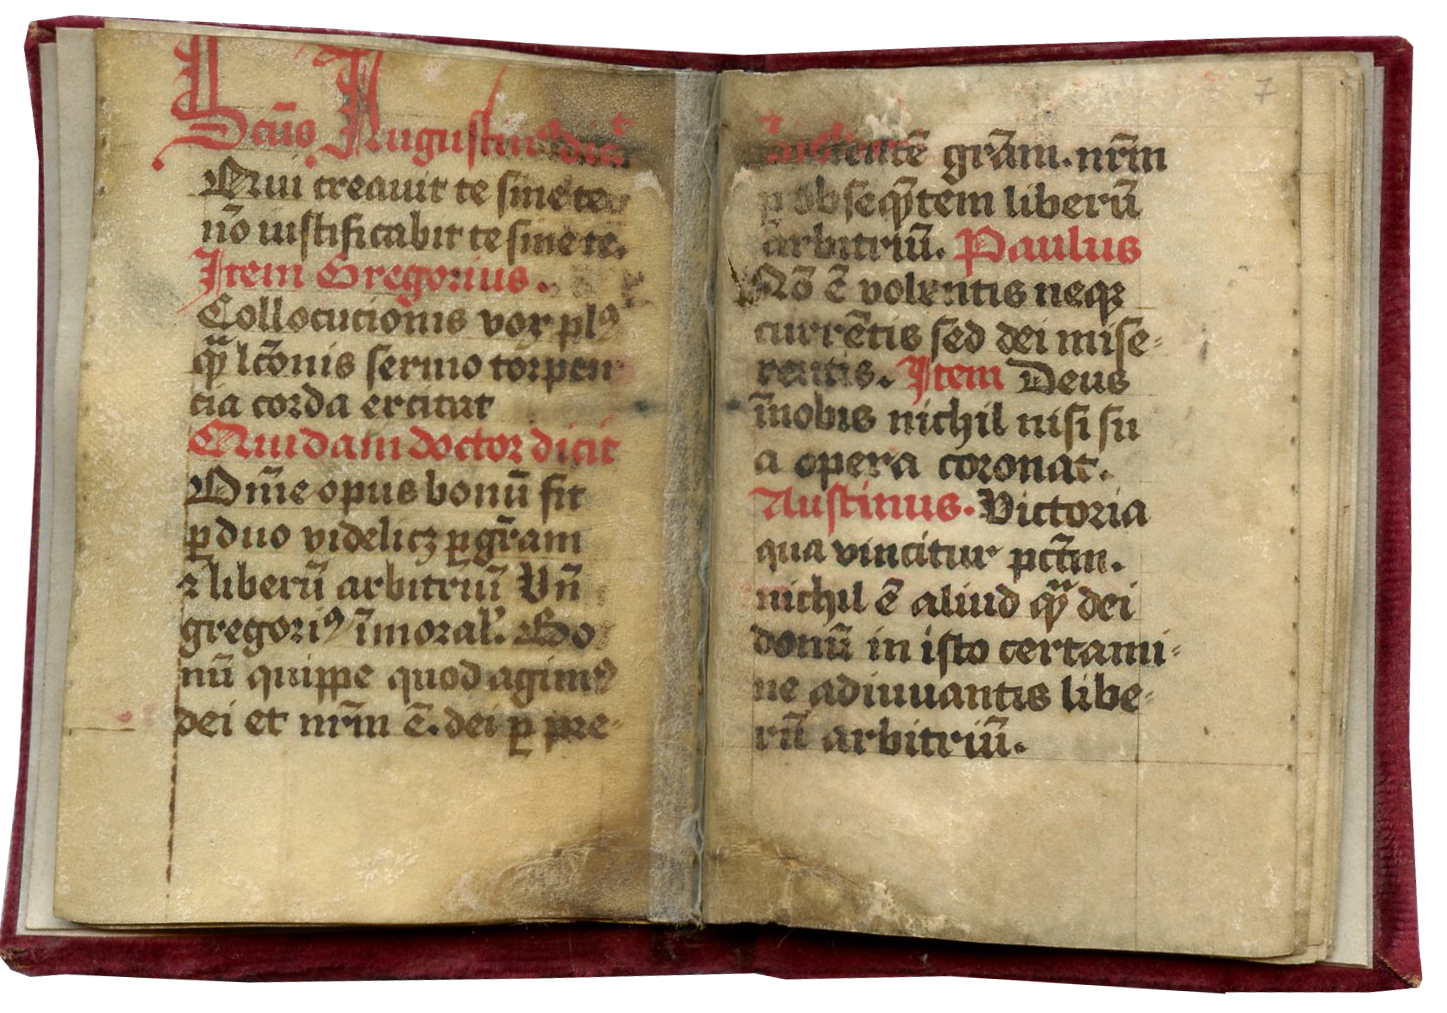 Sctũs Augustinus dicit
Qui creauit te sine te
nõ iustificabit te sine te.
Item Gregorius.
Collocucionis vox plꝰ
q̃ᷓ lcõnis sermo torpen
cia corda excitat
Quidam doctor dicit
Om̃e opus bonũ fit
ꝑ duo videlicꝫ ꝑ gr̃am
⁊ liberũ arbitriũ Vñ
gregoriꝰ ĩ moral'. Bo
nũ quippe quod agimꝰ
dei et nr̃m ẽ. dei ꝑ pre-
7
uenientẽ gr̃am. nr̃m
ꝑ obseq̃ᷓtem liberũ
arbitriũ. Paulus
Nõ ẽ volentis neqꝫ
currẽtis sed dei mise-
rentis. Item Deus
ĩ nobis nichil nisi su
a opera coronat.
Austinus. Victoria
qua vincitur pctm̃.
nichil ẽ aliud q̃ᷓ dei
donũ in isto certami-
ne adiuuantis libe-
rũ arbitriũ.